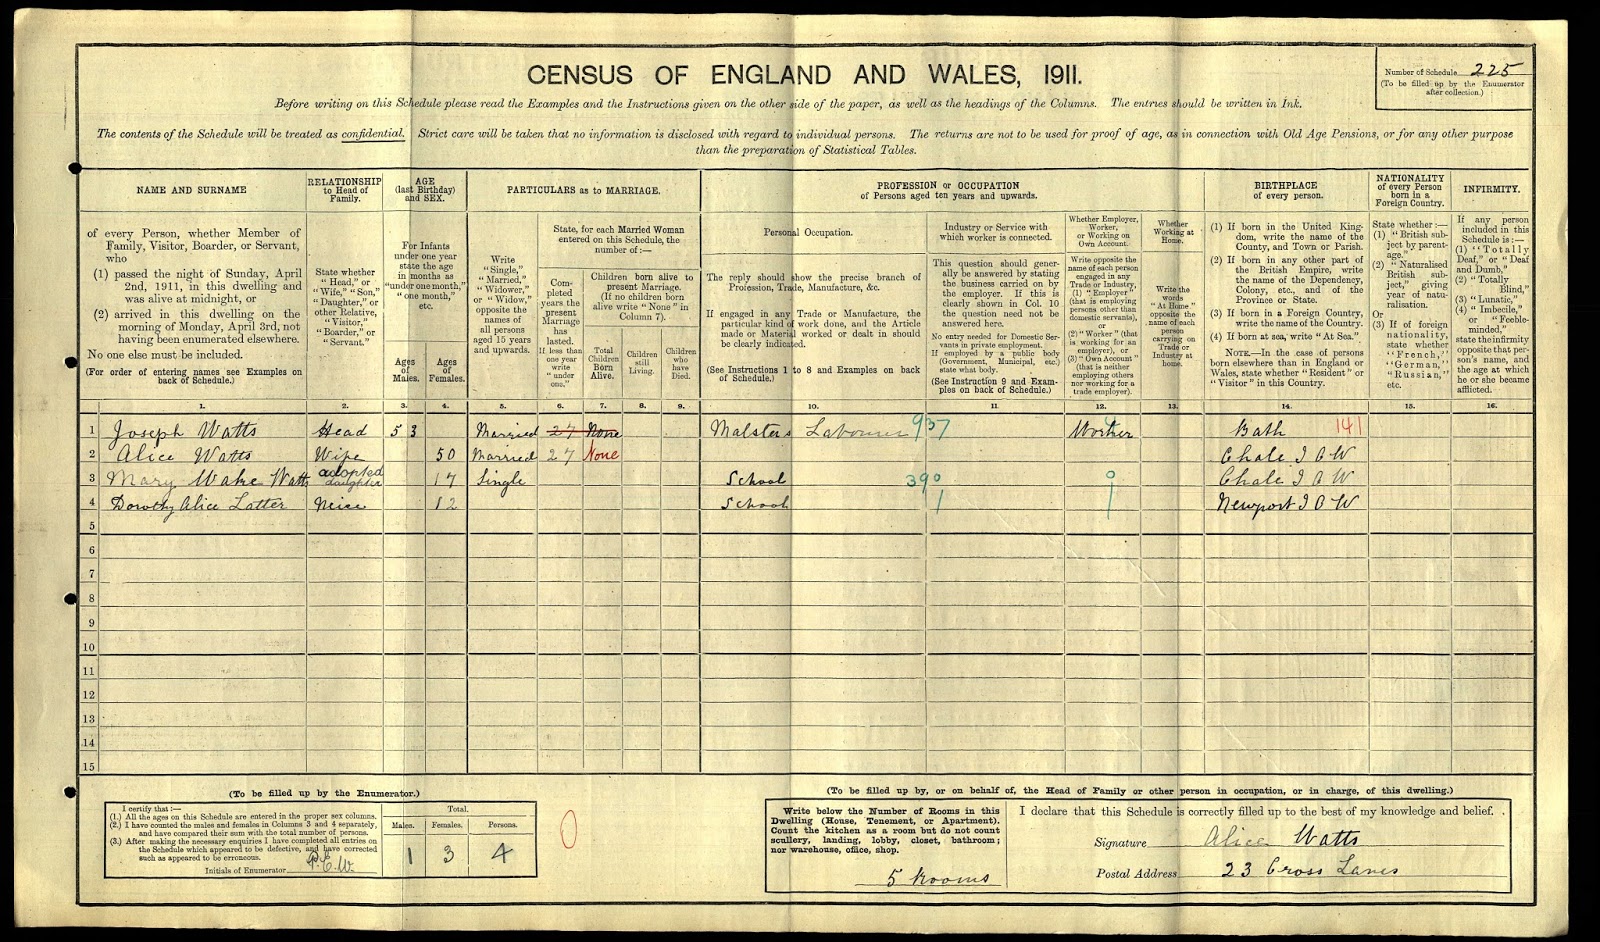 CENSUS OF ENGLAND AND WALES, 1911.
Number of Schedule 225
(To be filled up by the Enumerator
after collection.)
Before writing on this Schedule please read the Examples and the Instructions given on the other side of the paper, as well as the headings of the Columns. The entries should be written in Ink.
The contents of the Schedule will be treated as confidential. Strict care will be taken that no information is disclosed with regard to individual persons. The returns are not to be used for proof of age, as in connection with Old Age Pensions, or for any other purpose
than the preparation of Statistical Tables.
NAME AND SURNAME
RELATIONSHIP
to Head of
Family.
AGE
(last Birthday)
and SEX.
PARTICULARS as to MARRIAGE.
PROFESSION or OCCUPATION
of Persons aged ten years and upwards.
BIRTHPLACE
of every person.
NATIONALITY
of every Person
born in a
Foreign Country.
INFIRMITY.
of every Person, whether Member of
Family, Visitor, Boarder, or Servant,
who
(1) passed the night of Sunday, April
2nd, 1911, in this dwelling and
was alive at midnight, or
(2) arrived in this dwelling on the
morning of Monday, April 3rd, not
having been enumerated elsewhere.
No one else must be included.
(For order of entering names see Examples on
back of Schedule.)
State whether
"Head," or
"Wife," "Son,"
"Daughter," or
other Relative,
"Visitor,"
"Boarder," or
"Servant."
For Infants
under one year
state the age
in months as
"under one month,"
"one month,"
etc.
Ages
of
Males.
Ages
of
Females.
Write
"Single,"
"Married,"
"Widower,"
or "Widow,"
opposite the
names of
all persons
aged 15 years
and upwards.
State, for each Married Woman
entered on this Schedule, the
number of:—
Com-
pleted
years the
present
Marriage
has
lasted.
If less than
one year
write
"under
one."
Children born alive to
present Marriage.
(If no children born
alive write "None" in
Column 7).
Total
Children
Born
Alive.
Children
still
Living.
Children
who
have
Died.
Personal Occupation.
The reply should show the precise branch of
Profession, Trade, Manufacture, &c.
If engaged in any Trade or Manufacture, the
particular kind of work done, and the Article
made or Material worked or dealt in should
be clearly indicated.
(See Instructions 1 to 8 and Examples on back
of Schedule.)
Industry or Service with
which worker is connected.
This question should gener-
ally be answered by stating
the business carried on by
the employer. If this is
clearly shown in Col. 10
the question need not be
answered here.
No entry needed for Domestic Ser-
vants in private employment.
If employed by a public body
(Government, Municipal, etc.)
state what body.
(See Instruction 9 and Exam-
ples on back of Schedule.)
Whether Employer,
Worker,
or Working on
Own Account.
Write opposite the
name of each person
engaged in any
Trade or Industry,
(1) "Employer"
(that is employing
persons other than
domestic servants),
or
(2) "Worker" (that
is working for an
employer), or
(3) "Own Account"
(that is neither
employing others
nor working for a
trade employer).
Whether
Working at
Home.
Write the
words
"At Home"
opposite the
name of each
person
carrying on
Trade or
Industry at
home.
(1) If born in the United King-
dom, write the name of the
County, and Town or Parish.
(2) If born in any other part of
the British Empire, write
the name of the Dependency,
Colony, etc., and of the
Province or State.
(3) If born in a Foreign Country,
write the name of the Country.
(4) If born at sea, write "At Sea."
NOTE.—In the case of persons
born elsewhere than in England or
Wales, state whether "Resident" or
"Visitor" in this Country.
State whether:—
(1) "British sub-
ject by parent-
age."
(2) "Naturalised
British sub-
ject," giving
year of natu-
ralisation.
Or
(3) If of foreign
nationality,
state whether
"French,"
"German,"
"Russian,"
etc.
If any person
included in this
Schedule is:—
(1) "Totally
Deaf," or "Deaf
and Dumb,"
(2) "Totally
Blind,"
(3) "Lunatic,"
(4) "Imbecile,"
or "Feeble-
minded,"
state the infirmity
opposite that per-
son's name, and
the age at which
he or she became
afflicted.
1. 2. 3. 4. 5. 6. 7. 8. 9. 10. 11. 12. 13. 14. 15. 16.
1 Joseph Watts Head 53 Married 27 None Malsters Labourer 937 Worker Bath 141
2 Alice Watts Wife 50 Married 27 None Chale I O W
3 Mary Wake Watts adopted daughter 17 Single School 390 0 Chale I O W
4 Dorothy Alice Latter Neice 12 School Newport I O W
5
6
7
8
9
10
11
12
13
14
15
(To be filled up by the Enumerator.)
I certify that:—
(1.) All the ages on this Schedule are entered in the proper sex columns.
(2.) I have counted the males and females in Columns 3 and 4 separately,
and have compared their sum with the total number of persons.
(3.) After making the necessary enquiries I have completed all entries on
the Schedule which appeared to be defective, and have corrected
such as appeared to be erroneous.
Initials of Enumerator P.E.W.
Total.
Males. Females. Persons.
1 3 4
0
(To be filled up by, or on behalf of, the Head of Family or other person in occupation, or in charge, of this dwelling.)
Write below the Number of Rooms in this
Dwelling (House, Tenement, or Apartment).
Count the kitchen as a room but do not count
scullery, landing, lobby, closet, bathroom;
nor warehouse, office, shop.
5 Rooms
I declare that this Schedule is correctly filled up to the best of my knowledge and belief.
Signature Alice Watts
Postal Address 23 Cross Lanes